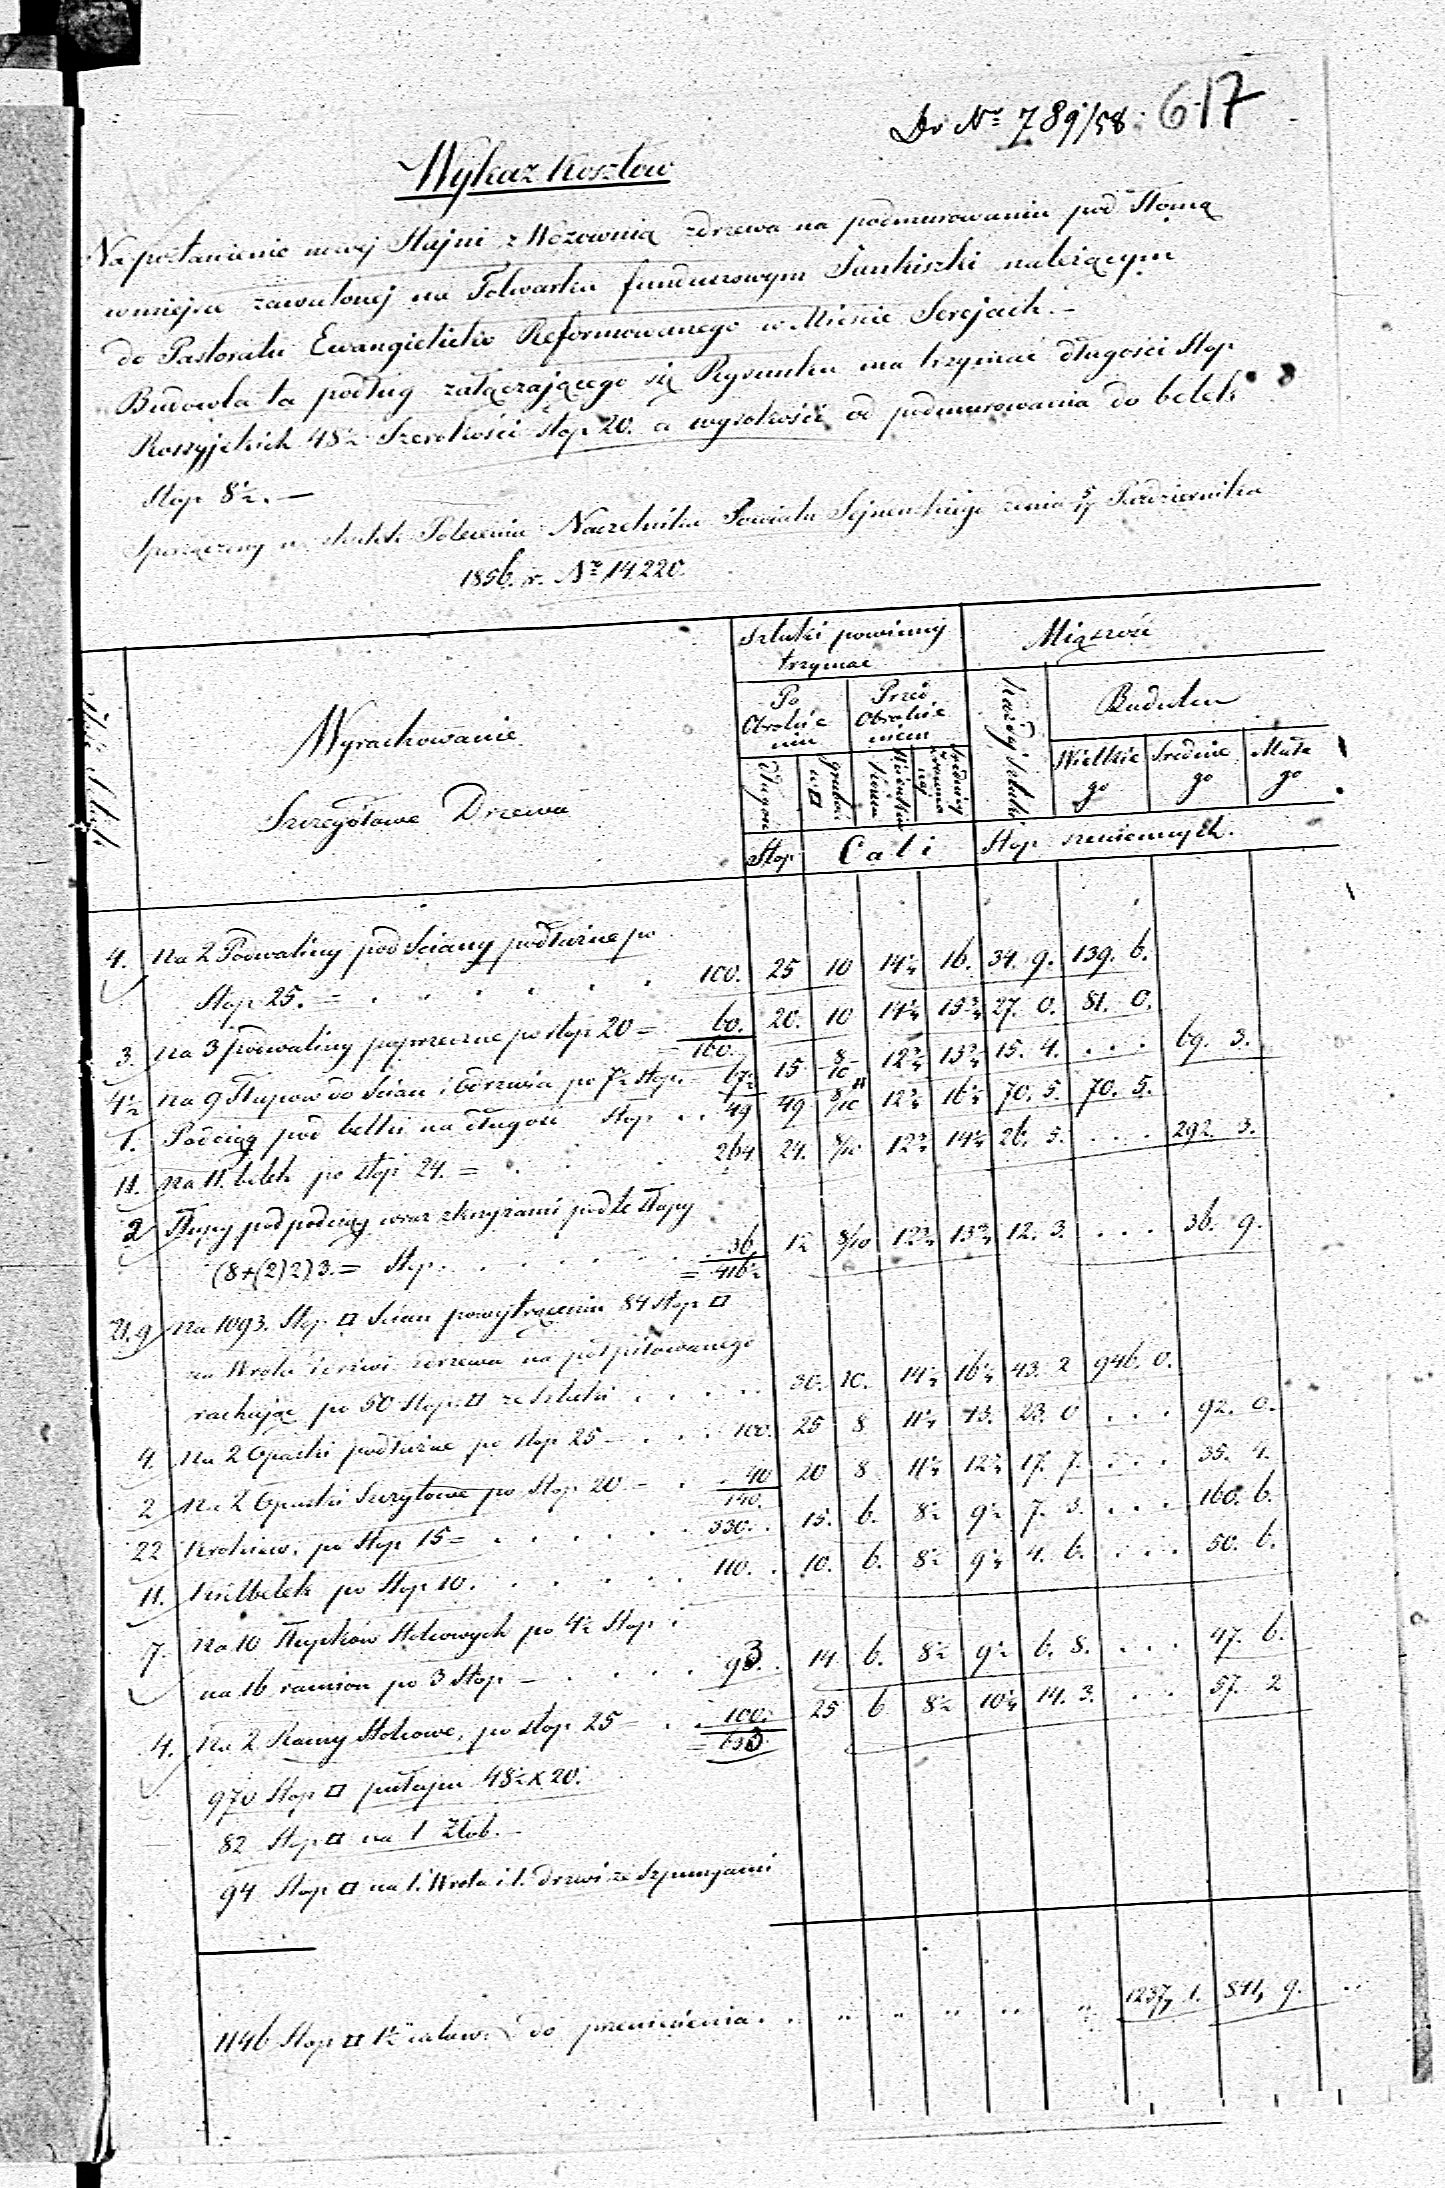 Do Nº 789/58. 617
Wykaz Kosztów
Na postawienie nowej Stajni z Wozownią z drzewa na podmurowaniu pod Słomą
w miejsce zawalonej na Folwarku funduszowym Sankiszki należącym
do Pastoratu Ewangielicko Reformowanego w Mieście Serejach. –
Budowla ta podług załączającego się Rysunku ma trzymać długości Stop
Rossyjskich 48½ Szerokości stop 20. a wysokości od podmurowania do belek
Stop 8½. –
Sporządzony w skutek Polecenia Naczelnika Powiatu Sejneńskiego z dnia 5/17 Października
1856. r. Nº 14220.
Wyrachowanie
Szczegółowe Drzewa
Sztuki powinny
trzymać
Po
Obrobie
niu
Przed
Obrobie
niem
Długość
Grubość
w □
Miąższość
Każdej Sztuki
Budulcu
Wielkie
go
Średnie
go
Małe
go
Stop
Cali
Stop sześciennych.
4. Na 2 Podwaliny pod Sciany podłużne po
Stop 25. = . . . . . . 100. 25 10 14¼ 16. 34. 9. 139. 6.
3. Na 3 podwaliny poprzeczne po stop 20 = 60. 20. 10 14¼ 15¾ 27. 0. 81. 0.
160.
4½ Na 9 Słupów do Scian i Odrzwia po 7½ stop. 67½ 15 8/10 12¾ 13¾ 15. 4. . . . 69. 3.
1. Podciąg pod belki na długość Stop . . 49 49 8/10 12¾ 16¼ 70. 5. 70. 5.
11. Na 11. belek po stop 24. = . . . 264 24. 8/10 12¾ 14¼ 26. 5. . . . 292. 3.
2 Słupy pod podciąg wraz z knyżami podle Słupy
(8+(2)2)3. = Stop. . . . . . . 36. 12 8/10 12¾ 13¾ 12. 3. . . . 36. 9.
= 416½
21.9 Na 1093. Stop □ Scian po wytrąceniu 84 Stop □
na Wrota i drzwi z drzewa na pół piłowanego
rachując po 50 Stop. □ ze Sztuki . . . . . 30. 10. 14¼ 16¼ 43. 2 946. 0.
4. Na 2 Opaski podłużne po stop 25 – . . . 100. 25 8 11¼ 13. 23. 0 . . . 92. 0.
2 Na 2 Opaski Szczytowe po Stop 20 – . . 40 20 8 11¼ 12¾ 17. 7. . . . 35. 4.
140.
22 Krokiew. po Stop 15 = . . . . . . 330. . 15. 6. 8½ 9½ 7. 3. . . . 160. 6.
11. Kielbelek po Stop 10. . . . . . . 110. . 10. 6. 8½ 9¼ 4. 6. . . . 50. 6.
7. Na 10 Słupków Stolcowych po 4½ Stop i
na 16 ramion po 3 Stop – . . . . . 93. . 14 6. 8½ 9½ 6. 8. . . . 47. 6.
4. Na 2 Ramy Stolcowe, po stop 25 – . . 100. 25 6 8½ 10¼ 14. 3. . . . 57. 2
= 633.
970 Stop □ pułapu 48½ x 20.
82 Stop □ na 1 Żłob. –
94 Stop □ na 1. Wrota i 1. drzwi ze Szpungami
1146 Stop □ 1½ calow. do przeniesienia. . . " " " " " 1237, 1. 841, 9. . .